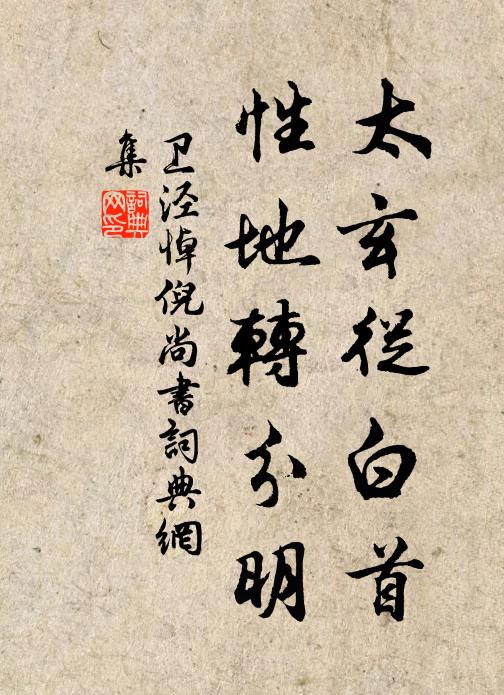 太玄從白首
性地轉分明
卫泾悼倪尚書詞典網
集
詞典网印